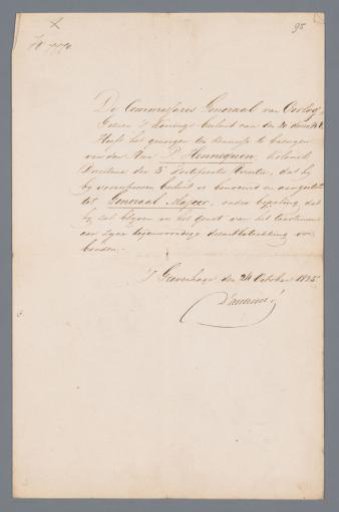 X
95
De Commissaris Generaal van Oorlog
Gezien 's Konings besluit van den 20
Heeft het genoegen ter kennisse te brengen
van den Heer P. Hennequin, Kolonel
Directeur der 3e Fortificatie Directie, dat hij
bij voornoemd besluit is benoemd en aangesteld
tot Generaal Majoor, onder bepaling, dat
hij zal blijven in het genot van het tractement
aan zijne tegenwoordige dienstbetrekking ver-
bonden.
's Gravenhage den 24 October 1825.